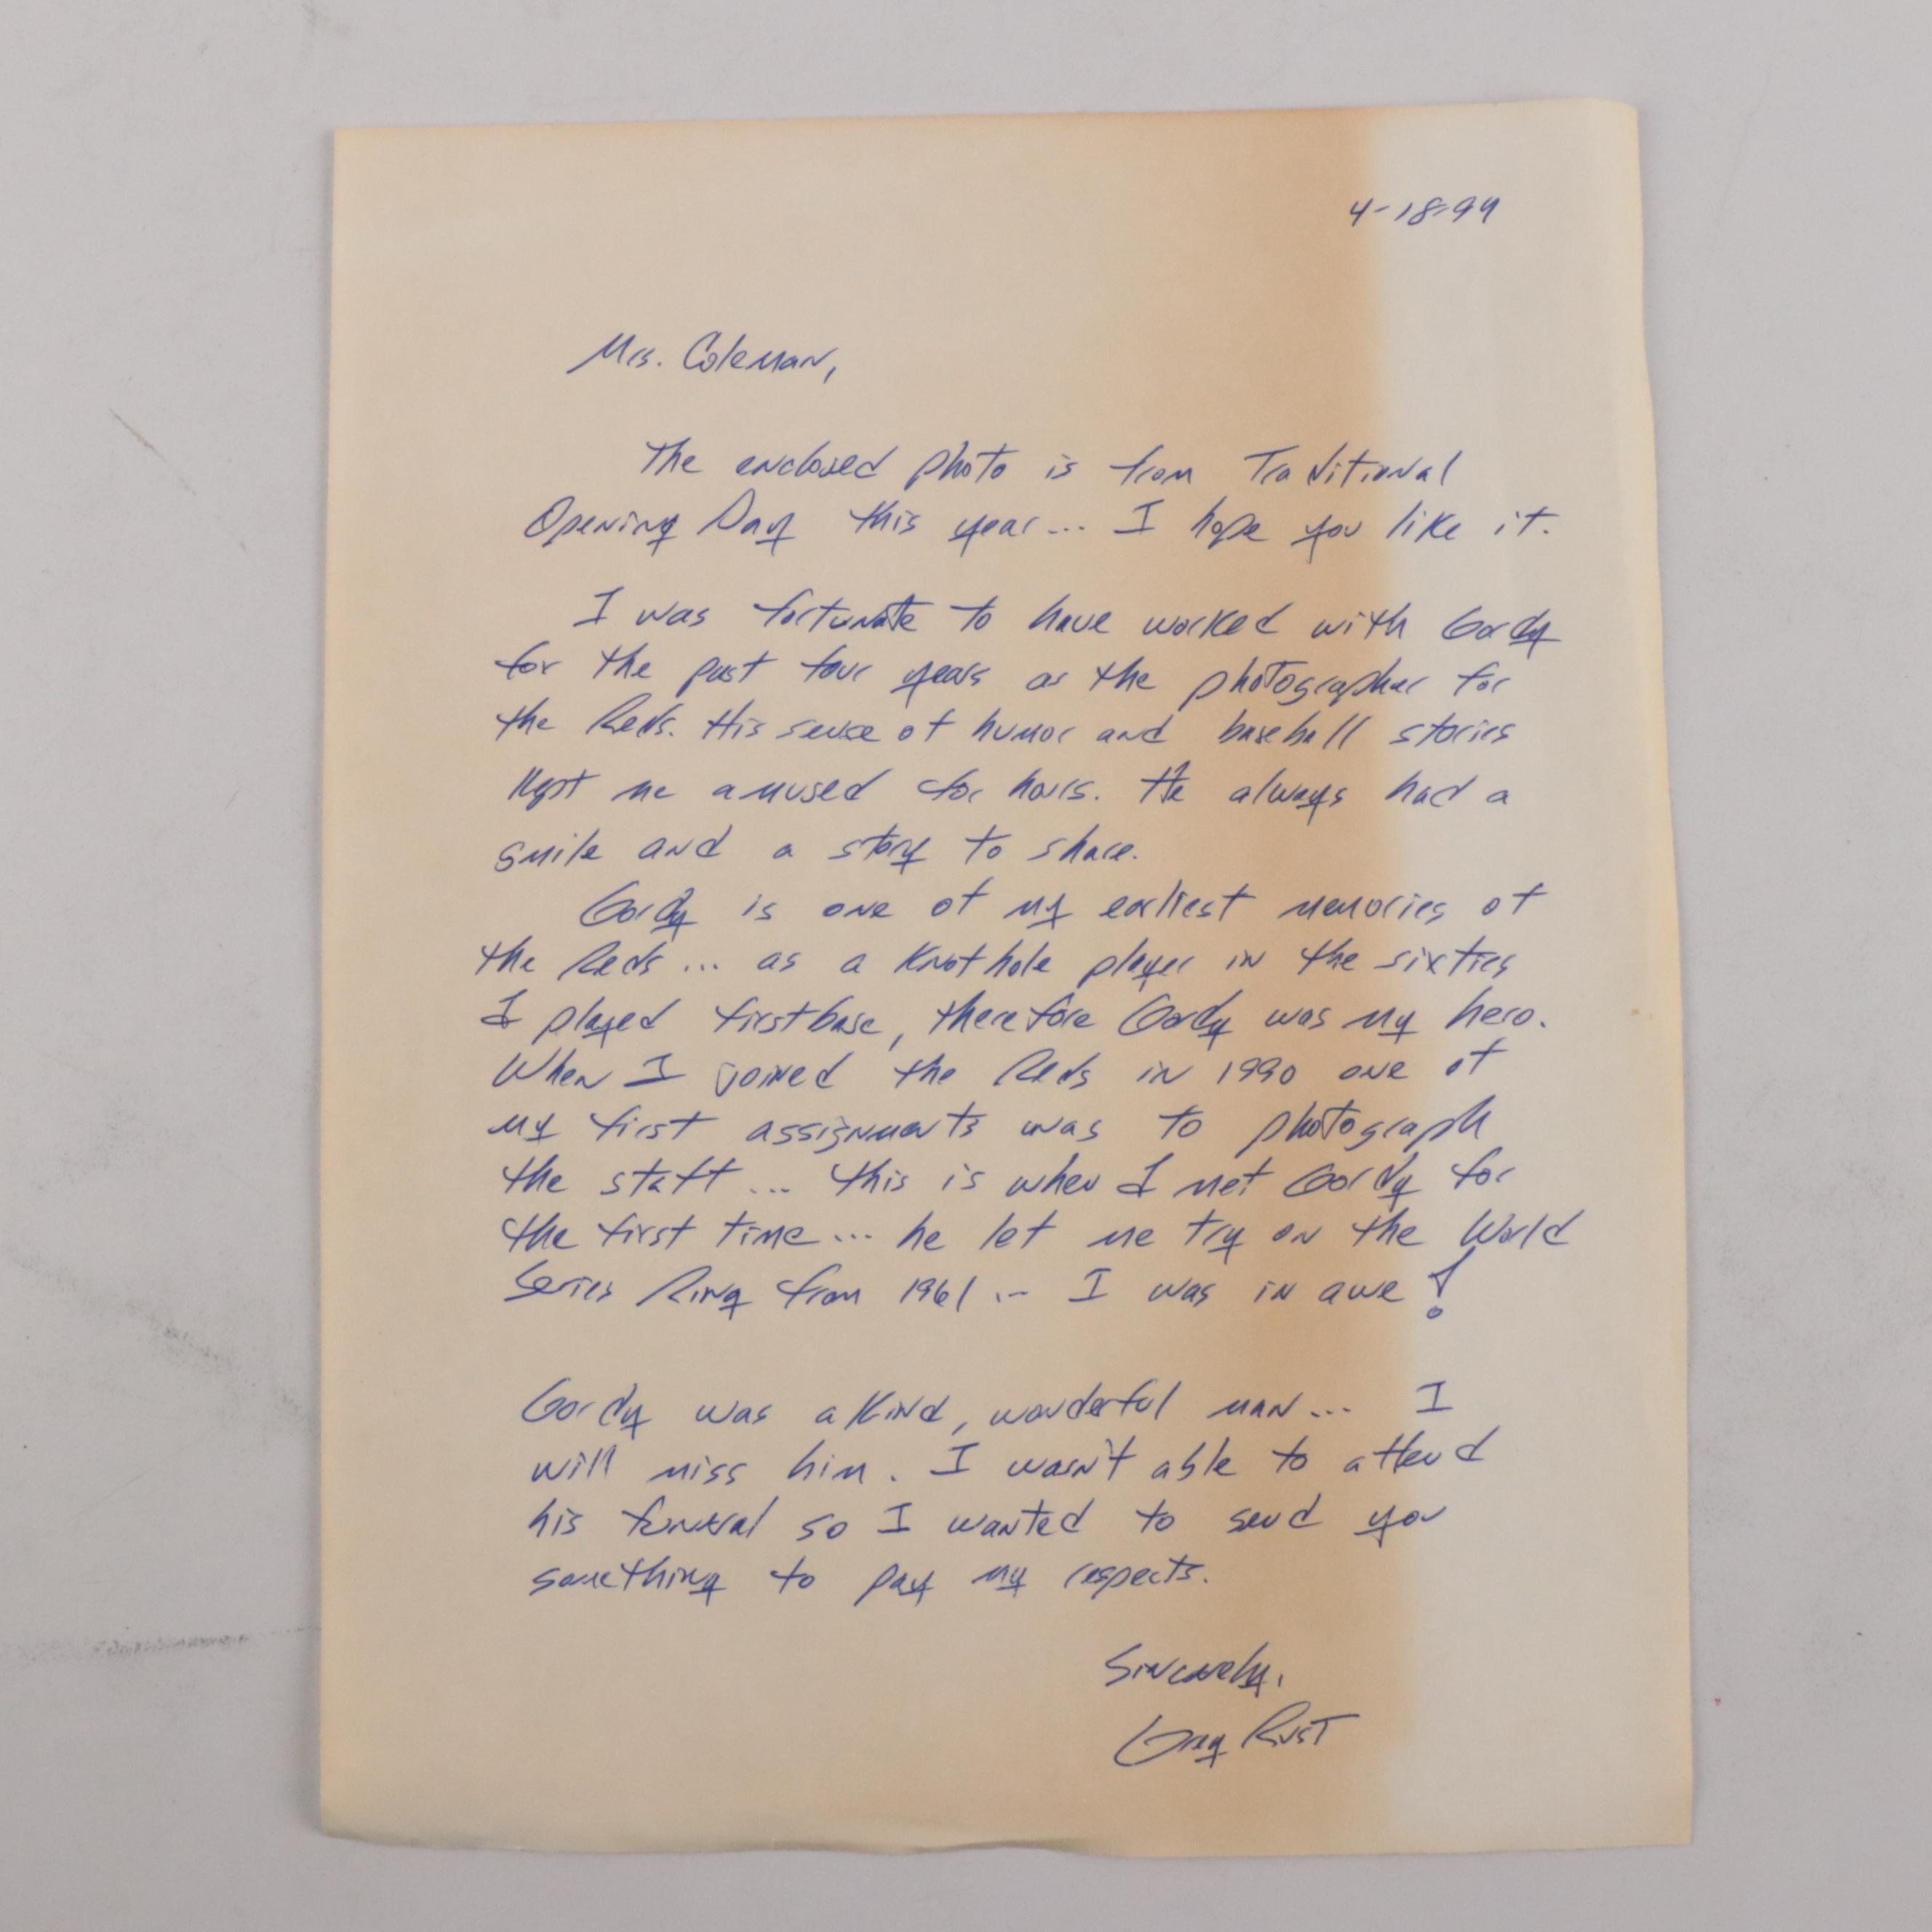 4-18-94
Mrs. Coleman,
The enclosed photo is from Traditional
Opening Day this year... I hope you like it.
I was fortunate to have worked with Gordy
for the past four years as the photographer for
the Reds. His sense of humor and baseball stories
kept me amused for hours. He always had a
smile and a story to share.
Gordy is one of my earliest memories of
the Reds... as a Knothole player in the sixties
I played firstbase, therefore Gordy was my hero.
When I joined the Reds in 1990 one of
my first assignments was to photograph
the staff... this is when I met Gordy for
the first time... he let me try on the World
Series Ring from 1961... I was in awe!
Gordy was a kind, wonderful man... I
will miss him. I wasn't able to attend
his funeral so I wanted to send you
something to pay my respects.
Sincerely,
Greg Rust